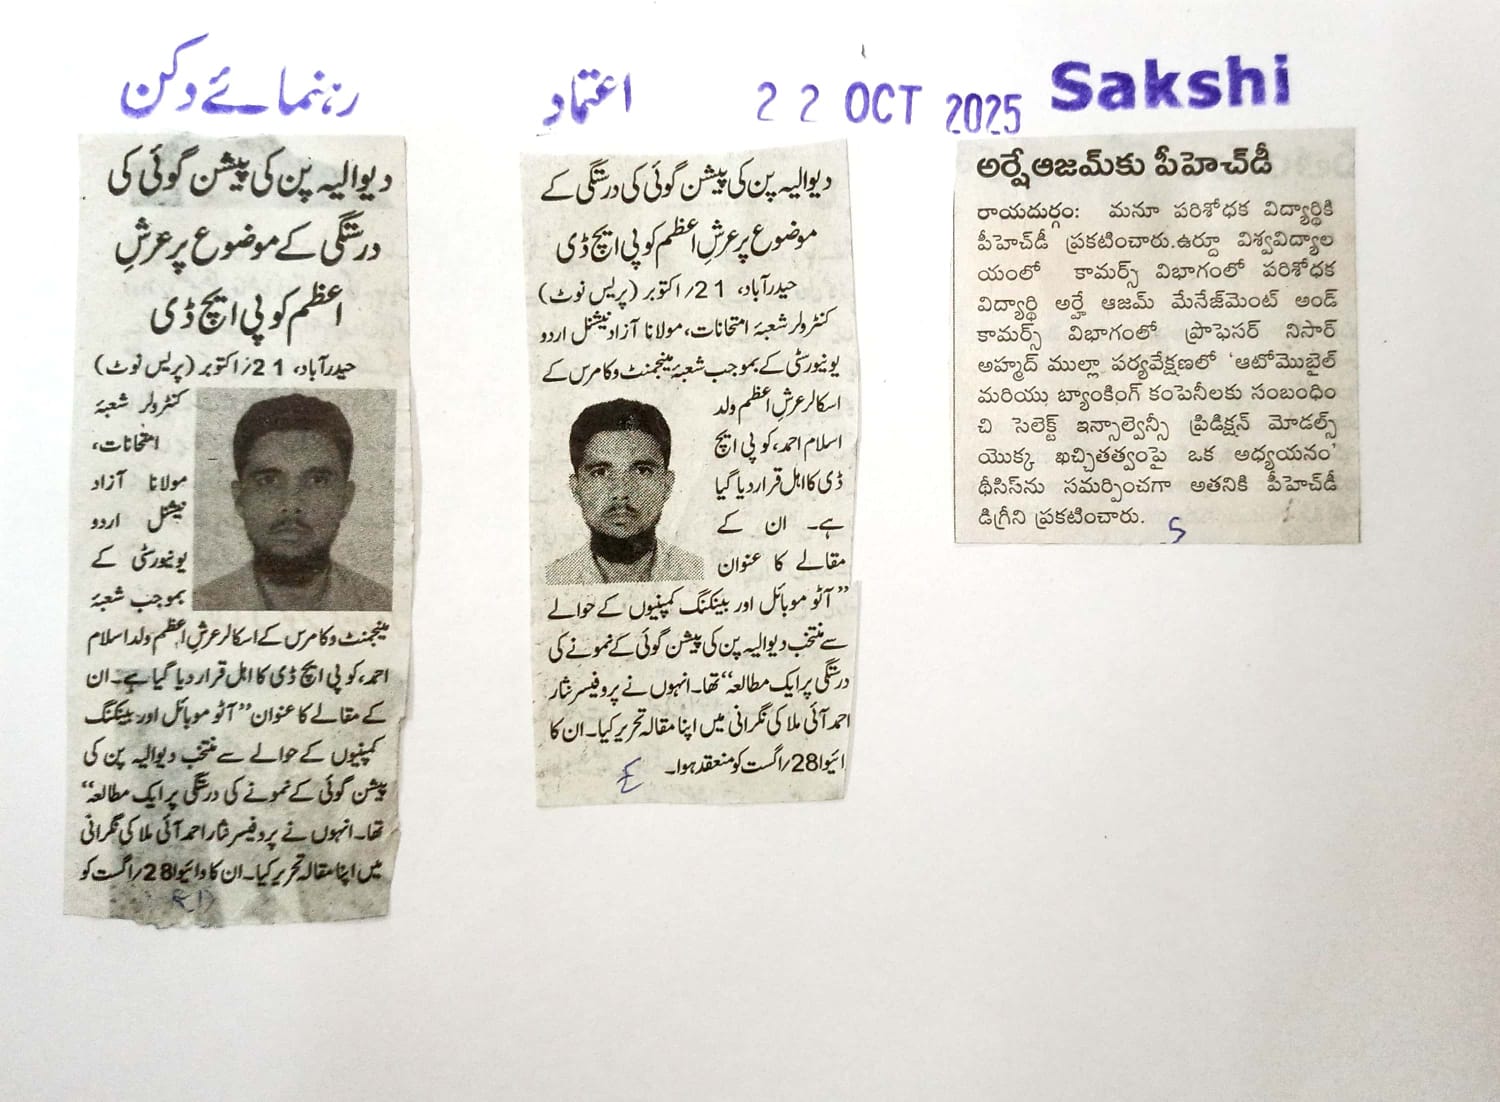 رہنمائے دکن
دیوالیہ پن کی پیشن گوئی کی
درستگی کے موضوع پر عرشِ
اعظم کو پی ایچ ڈی
حیدرآباد، 21/ اکتوبر (پریس نوٹ)
کنٹرولر شعبۂ
امتحانات،
مولانا آزاد
نیشنل اردو
یونیورسٹی کے
بموجب شعبۂ
مینجمنٹ و کامرس کے اسکالر عرشِ اعظم ولد اسلام
احمد، کو پی ایچ ڈی کا اہل قرار دیا گیا ہے۔ ان
کے مقالے کا عنوان ”آٹو موبائل اور بینکنگ
کمپنیوں کے حوالے سے منتخب دیوالیہ پن کی
پیشن گوئی کے نمونے کی درستگی پر ایک مطالعہ“
تھا۔ انہوں نے پروفیسر نثار احمد آئی ملا کی نگرانی
میں اپنا مقالہ تحریر کیا۔ ان کا وائیوا 28/ اگست کو
اعتماد
دیوالیہ پن کی پیشن گوئی کی درستگی کے
موضوع پر عرشِ اعظم کو پی ایچ ڈی
حیدرآباد، 21/ اکتوبر (پریس نوٹ)
کنٹرولر شعبۂ امتحانات، مولانا آزاد نیشنل اردو
یونیورسٹی کے بموجب شعبۂ مینجمنٹ و کامرس کے
اسکالر عرشِ اعظم ولد
اسلام احمد، کو پی ایچ
ڈی کا اہل قرار دیا گیا
ہے۔ ان کے
مقالے کا عنوان
”آٹو موبائل اور بینکنگ کمپنیوں کے حوالے
سے منتخب دیوالیہ پن کی پیشن گوئی کے نمونے کی
درستگی پر ایک مطالعہ“ تھا۔ انہوں نے پروفیسر نثار
احمد آئی ملا کی نگرانی میں اپنا مقالہ تحریر کیا۔ ان کا
ائیوا 28/ اگست کو منعقد ہوا۔
ع
22 OCT 2025
Sakshi
అర్షేఆజమ్‌కు పీహెచ్‌డీ
రాయదుర్గం: మనూ పరిశోధక విద్యార్థికి
పీహెచ్‌డీ ప్రకటించారు.ఉర్దూ విశ్వవిద్యాల
యంలో కామర్స్ విభాగంలో పరిశోధక
విద్యార్థి అర్షే ఆజమ్ మేనేజ్‌మెంట్ అండ్
కామర్స్ విభాగంలో ప్రొఫెసర్ నిసార్
అహ్మద్ ముల్లా పర్యవేక్షణలో ‘ఆటోమొబైల్
మరియు బ్యాంకింగ్ కంపెనీలకు సంబంధిం
చి సెలెక్ట్ ఇన్సాల్వెన్సీ ప్రిడిక్షన్ మోడల్స్
యొక్క ఖచ్చితత్వంపై ఒక అధ్యయనం’
థీసిస్‌ను సమర్పించగా అతనికి పీహెచ్‌డీ
డిగ్రీని ప్రకటించారు.
S